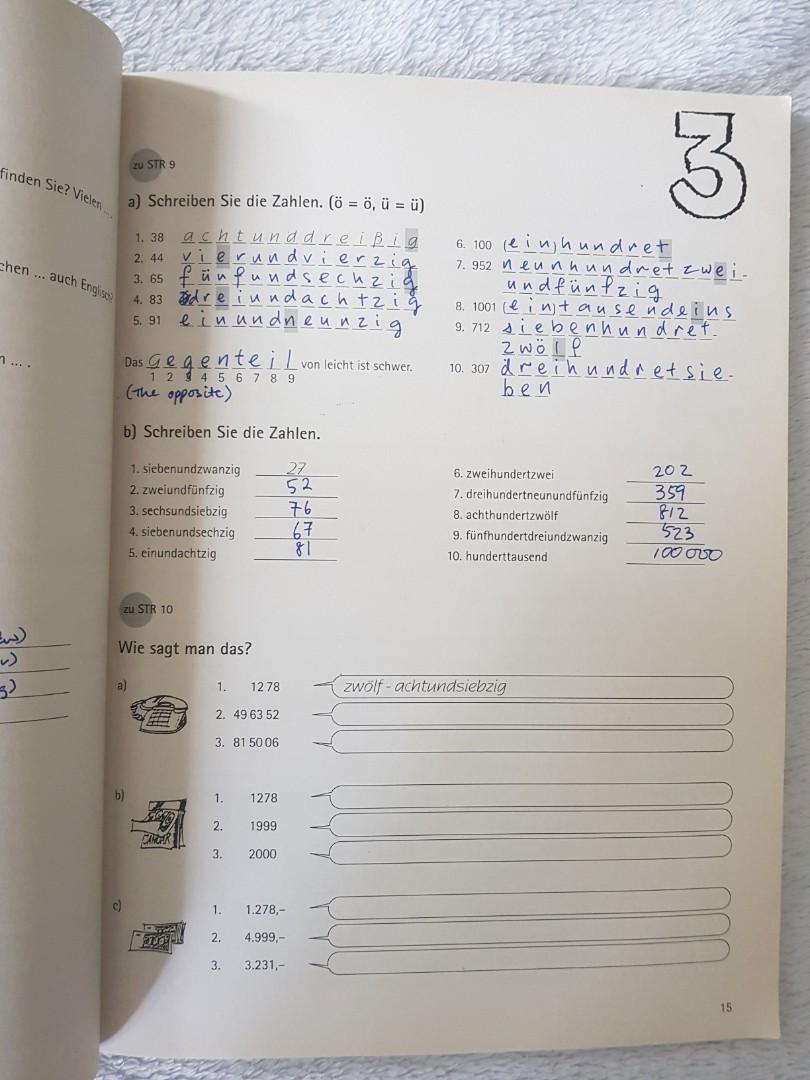 finden Sie? Vielen ...
chen ... auch Englisch?
n ... .
3
zu STR 9
a) Schreiben Sie die Zahlen. (ö = ö, ü = ü)
1. 38 achtunddreißig
2. 44 vierundvierzig
3. 65 fünfundsechzig
4. 83 dreiundachtzig
5. 91 einundneunzig
Das Gegenteil von leicht ist schwer.
1 2 3 4 5 6 7 8 9
(the opposite)
6. 100 (ein)hundret
7. 952 neunhundretzwei-
undfünfzig
8. 1001 (ein)tausendeins
9. 712 siebenhundret-
zwölf
10. 307 dreihundretsie-
ben
b) Schreiben Sie die Zahlen.
1. siebenundzwanzig 27
2. zweiundfünfzig 52
3. sechsundsiebzig 76
4. siebenundsechzig 67
5. einundachtzig 81
6. zweihundertzwei 202
7. dreihundertneunundfünfzig 359
8. achthundertzwölf 812
9. fünfhundertdreiundzwanzig 523
10. hunderttausend 100000
zu STR 10
Wie sagt man das?
a)
1. 12 78 zwölf - achtundsiebzig
2. 49 63 52
3. 81 50 06
b)
1. 1278
2. 1999
3. 2000
c)
1. 1.278,–
2. 4.999,–
3. 3.231,–
15